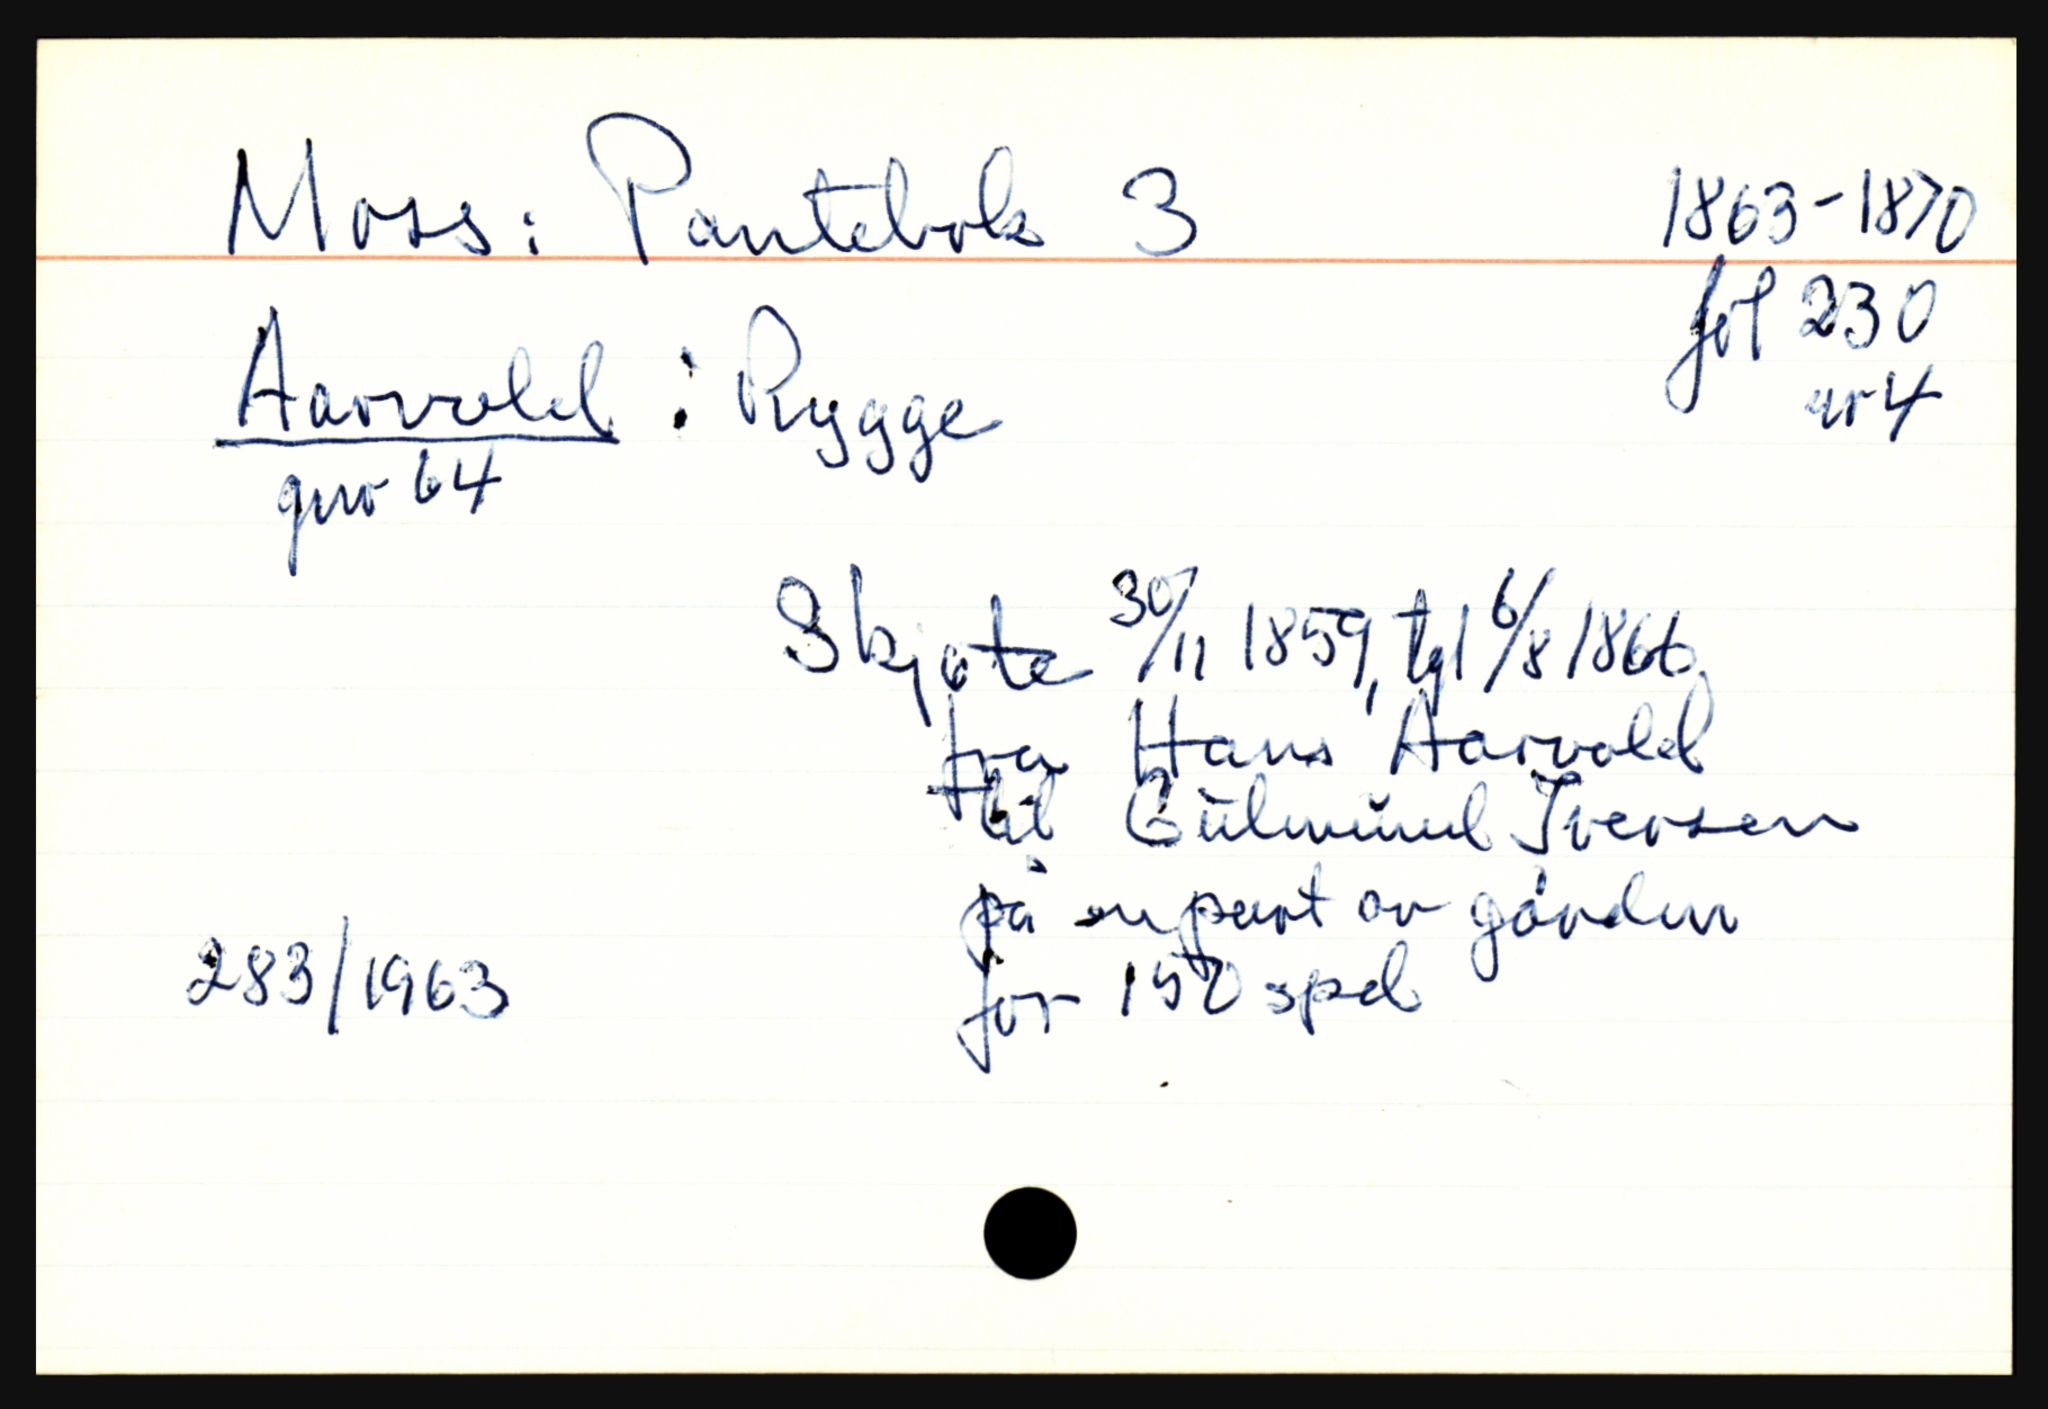 Moss: Pantebok 3 1863-1870
fol 230
nr 4
Aarvold : Rygge
gnr 64
Skjøte 30/11 1859, tgl 6/8 1866
fra Hans Aarvold
til Gulmund Iversen
på en part av gården
for 150 spd
283/1963